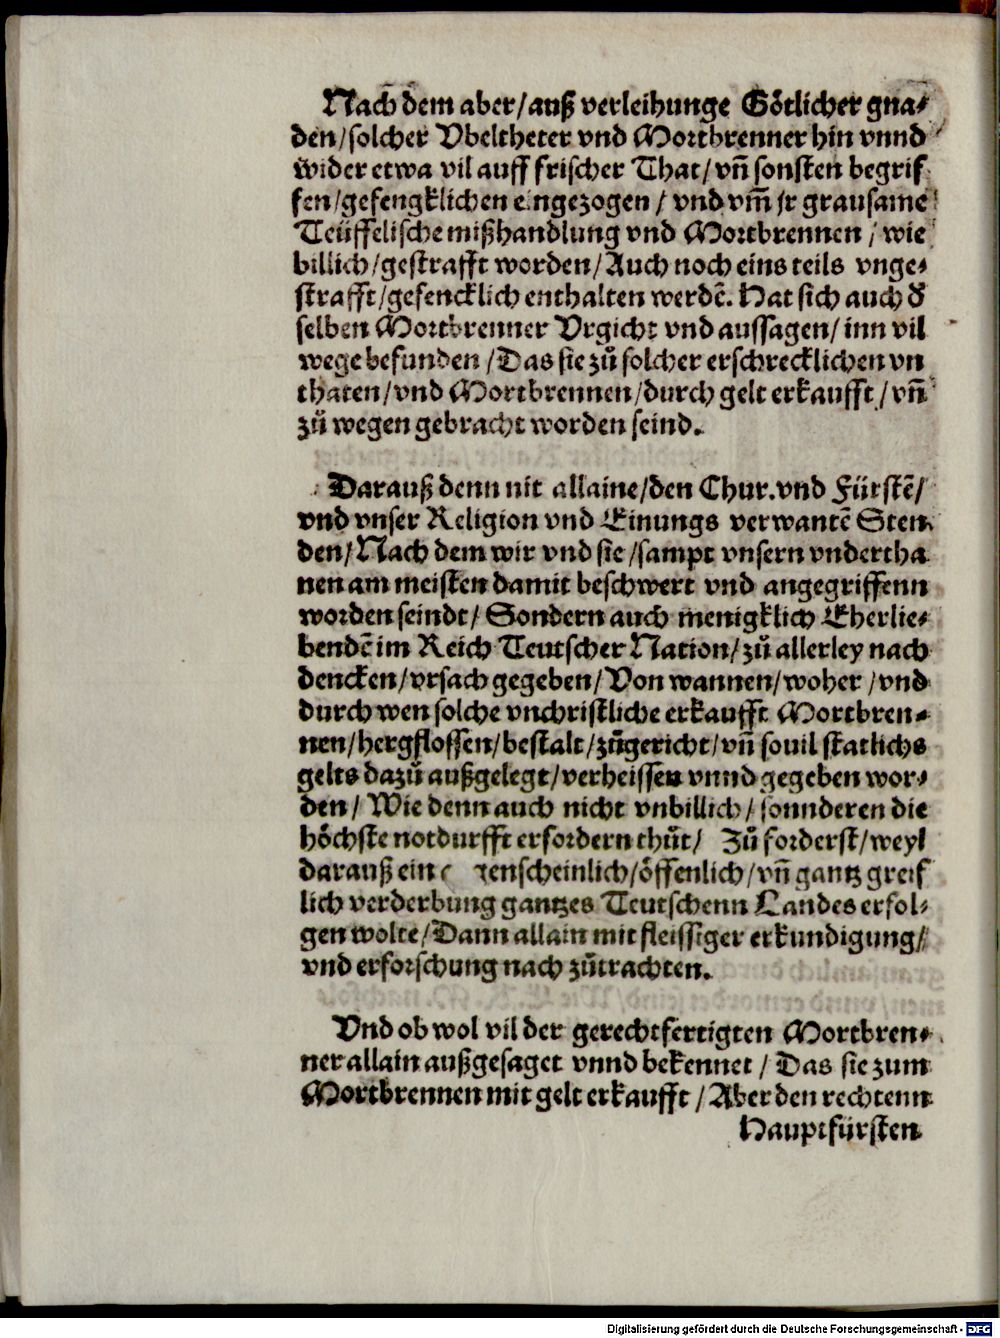 Nach dem aber/auß verleihunge Götlicher gna⸗
den/solcher Vbeltheter vnd Mortbrenner hin vnnd
wider etwa vil auff frischer That/vñ sonsten begrif
fen/gefengklichen eingezogen/vnd vm̃ jr grausame
Teüffelische mißhandlung vnd Mortbrennen/wie
billich/gestrafft worden/Auch noch eins teils vnge⸗
strafft/gefencklich enthalten werdẽ. Hat sich auch d̕
selben Mortbrenner Vrgicht vnd aussagen/inn vil
wege befunden/Das sie zů solcher erschrecklichen vn
thaten/vnd Mortbrennen/durch gelt erkaufft/vñ
zů wegen gebracht worden seind.
Darauß denn nit allaine/den Chur.vnd Fürstẽ/
vnd vnser Religion vnd Einungs verwantẽ Sten
den/Nach dem wir vnd sie/sampt vnsern vndertha
nen am meisten damit beschwert vnd angegriffenn
worden seindt/Sondern auch menigklich Eherlie⸗
bendẽ im Reich Teutscher Nation/zů allerley nach
dencken/vrsach gegeben/Von wannen/woher/vnd
durch wen solche vnchristliche erkaufft Mortbren⸗
nen/hergflossen/bestalt/zůgericht/vñ souil statlichs
gelts dazů außgelegt/verheissen vnnd gegeben wor⸗
den/Wie denn auch nicht vnbillich/sonnderen die
höchste notdurfft erfordern thůt/ Zů forderst/weyl
darauß ein enscheinlich/öffenlich/vñ gantz greif
lich verderbung gantzes Teutschenn Landes erfol⸗
gen wolte/Dann allain mit fleissiger erkundigung/
vnd erforschung nach zůtrachten.
Vnd ob wol vil der gerechtfertigten Mortbren⸗
ner allain außgesaget vnnd bekennet/Das sie zum
Mortbrennen mit gelt erkaufft/Aber den rechtenn
Hauptfürsten
Digitalisierung gefördert durch die Deutsche Forschungsgemeinschaft - DFG